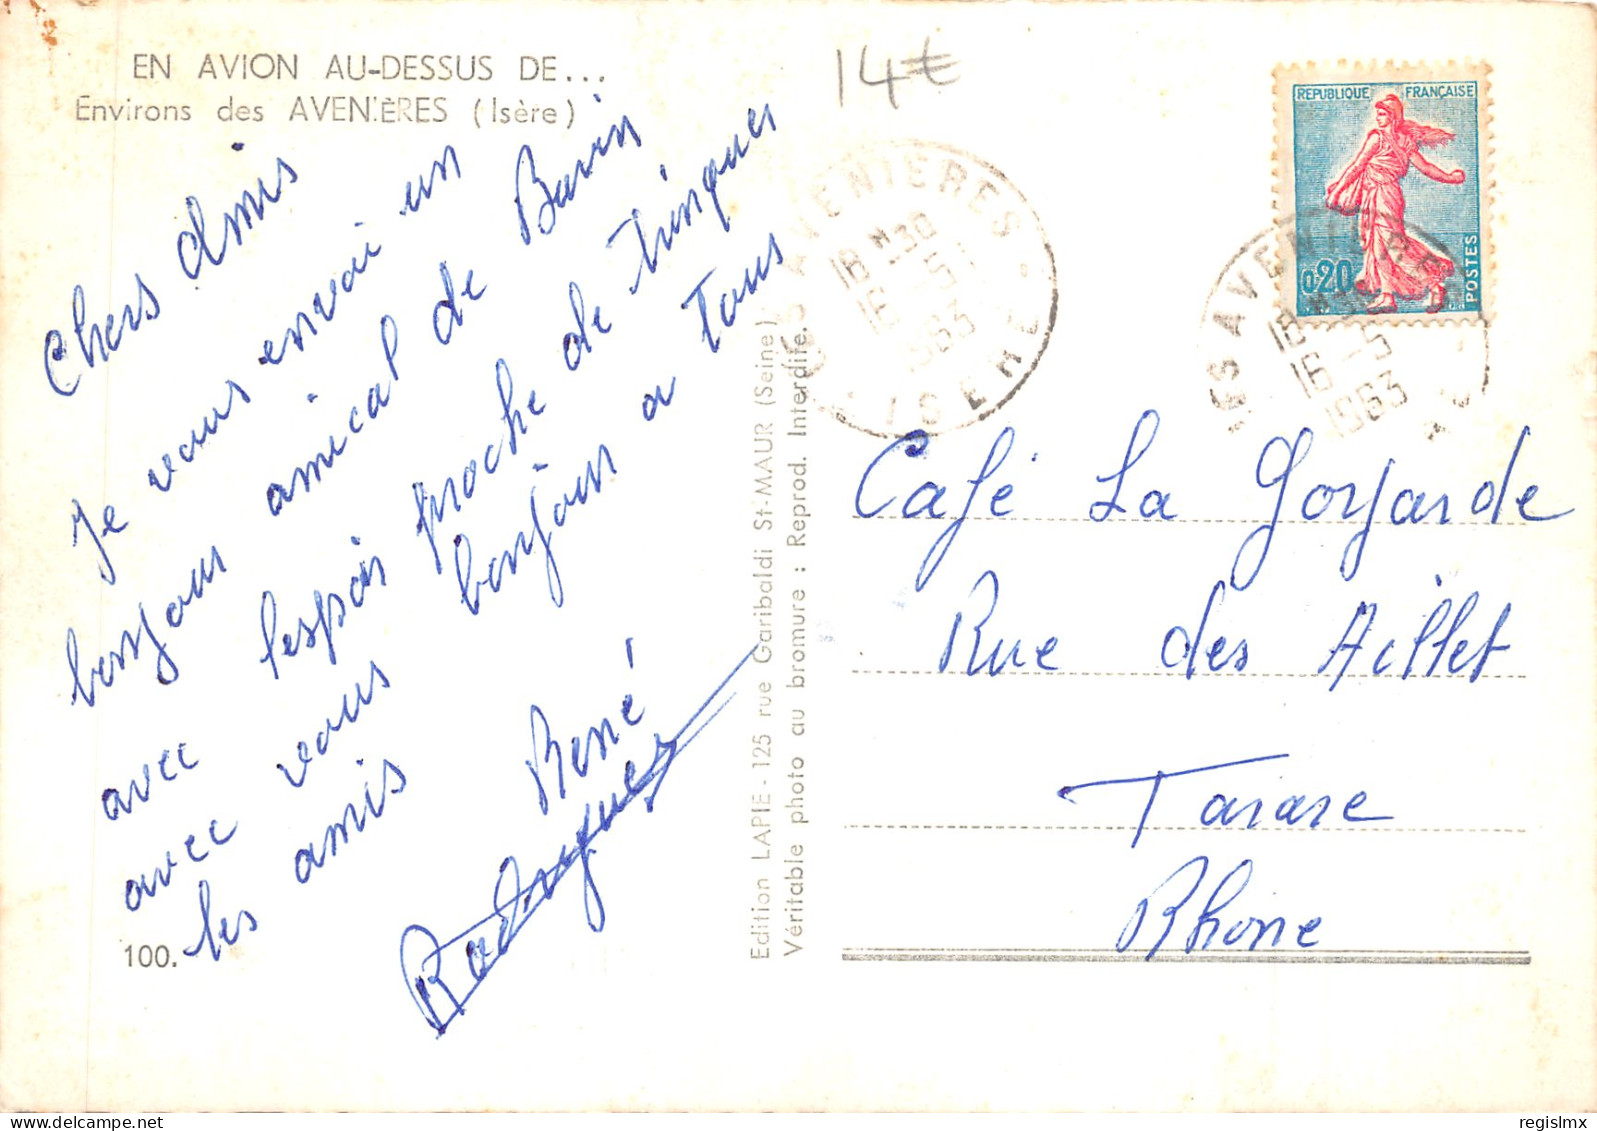 EN AVION AU-DESSUS DE...
Environs des AVENIÈRES (Isère)
14€
REPUBLIQUE FRANÇAISE
0,20
POSTES
LES AVENIERES
18H30
16-5
1963
ISERE
LES AVENIERES
18H30
16-5
1963
Chers Amis
Je vous envoi un
bonjour amical de Buvin
avec l'espoir proche de trinquer
avec vous bonjour a Tous
les amis René
Rodrigues
100.
Edition LAPIE - 125 rue Garibaldi St-MAUR (Seine)
Véritable photo au bromure : Reprod. Interdite.
Café La Gorjarde
Rue des Aillet
Tarare
Rhone
regislmx